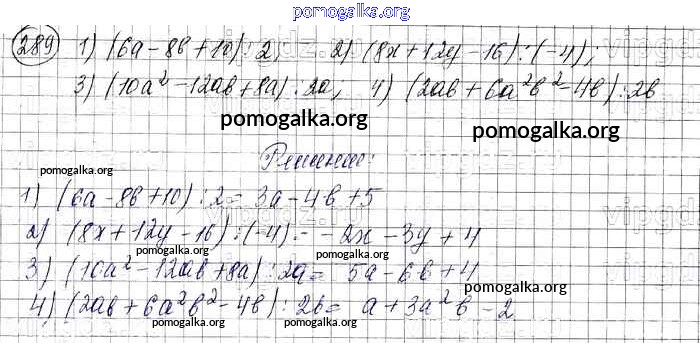 pomogalka.org
289 1) (6a-8b+10):2, 2) (8x+12y-16):(-4);
3) (10a²-12ab+8a):2a, 4) (2ab+6a²b²-4b):2b
pomogalka.org pomogalka.org
Решение:
pomogalka.org pomogalka.org
1) (6a-8b+10):2=3a-4b+5
2) (8x+12y-16):(-4)=-2x-3y+4
pomogalka.org pomogalka.org
3) (10a²-12ab+8a):2a=5a-6b+4
4) (2ab+6a²b²-4b):2b=a+3a²b-2
pomogalka.org pomogalka.org